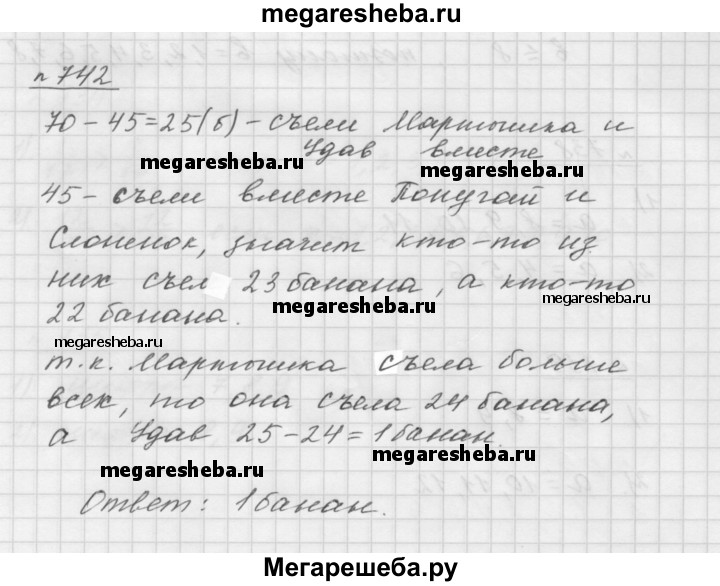 megaresheba.ru
n 742
70 – 45 = 25 (б) – съели Мартышка и
Удав вместе
megaresheba.ru
45 – съели вместе Попугай и
Слоненок, значит кто-то из
них съел 23 банана, а кто-то
megaresheba.ru
megaresheba.ru
22 банана.
megaresheba.ru
т.к. Мартышка съела больше
всех, то она съела 24 банана,
а Удав 25 – 24 = 1 банан.
megaresheba.ru
megaresheba.ru
Ответ: 1 банан.
Мегарешеба.ру